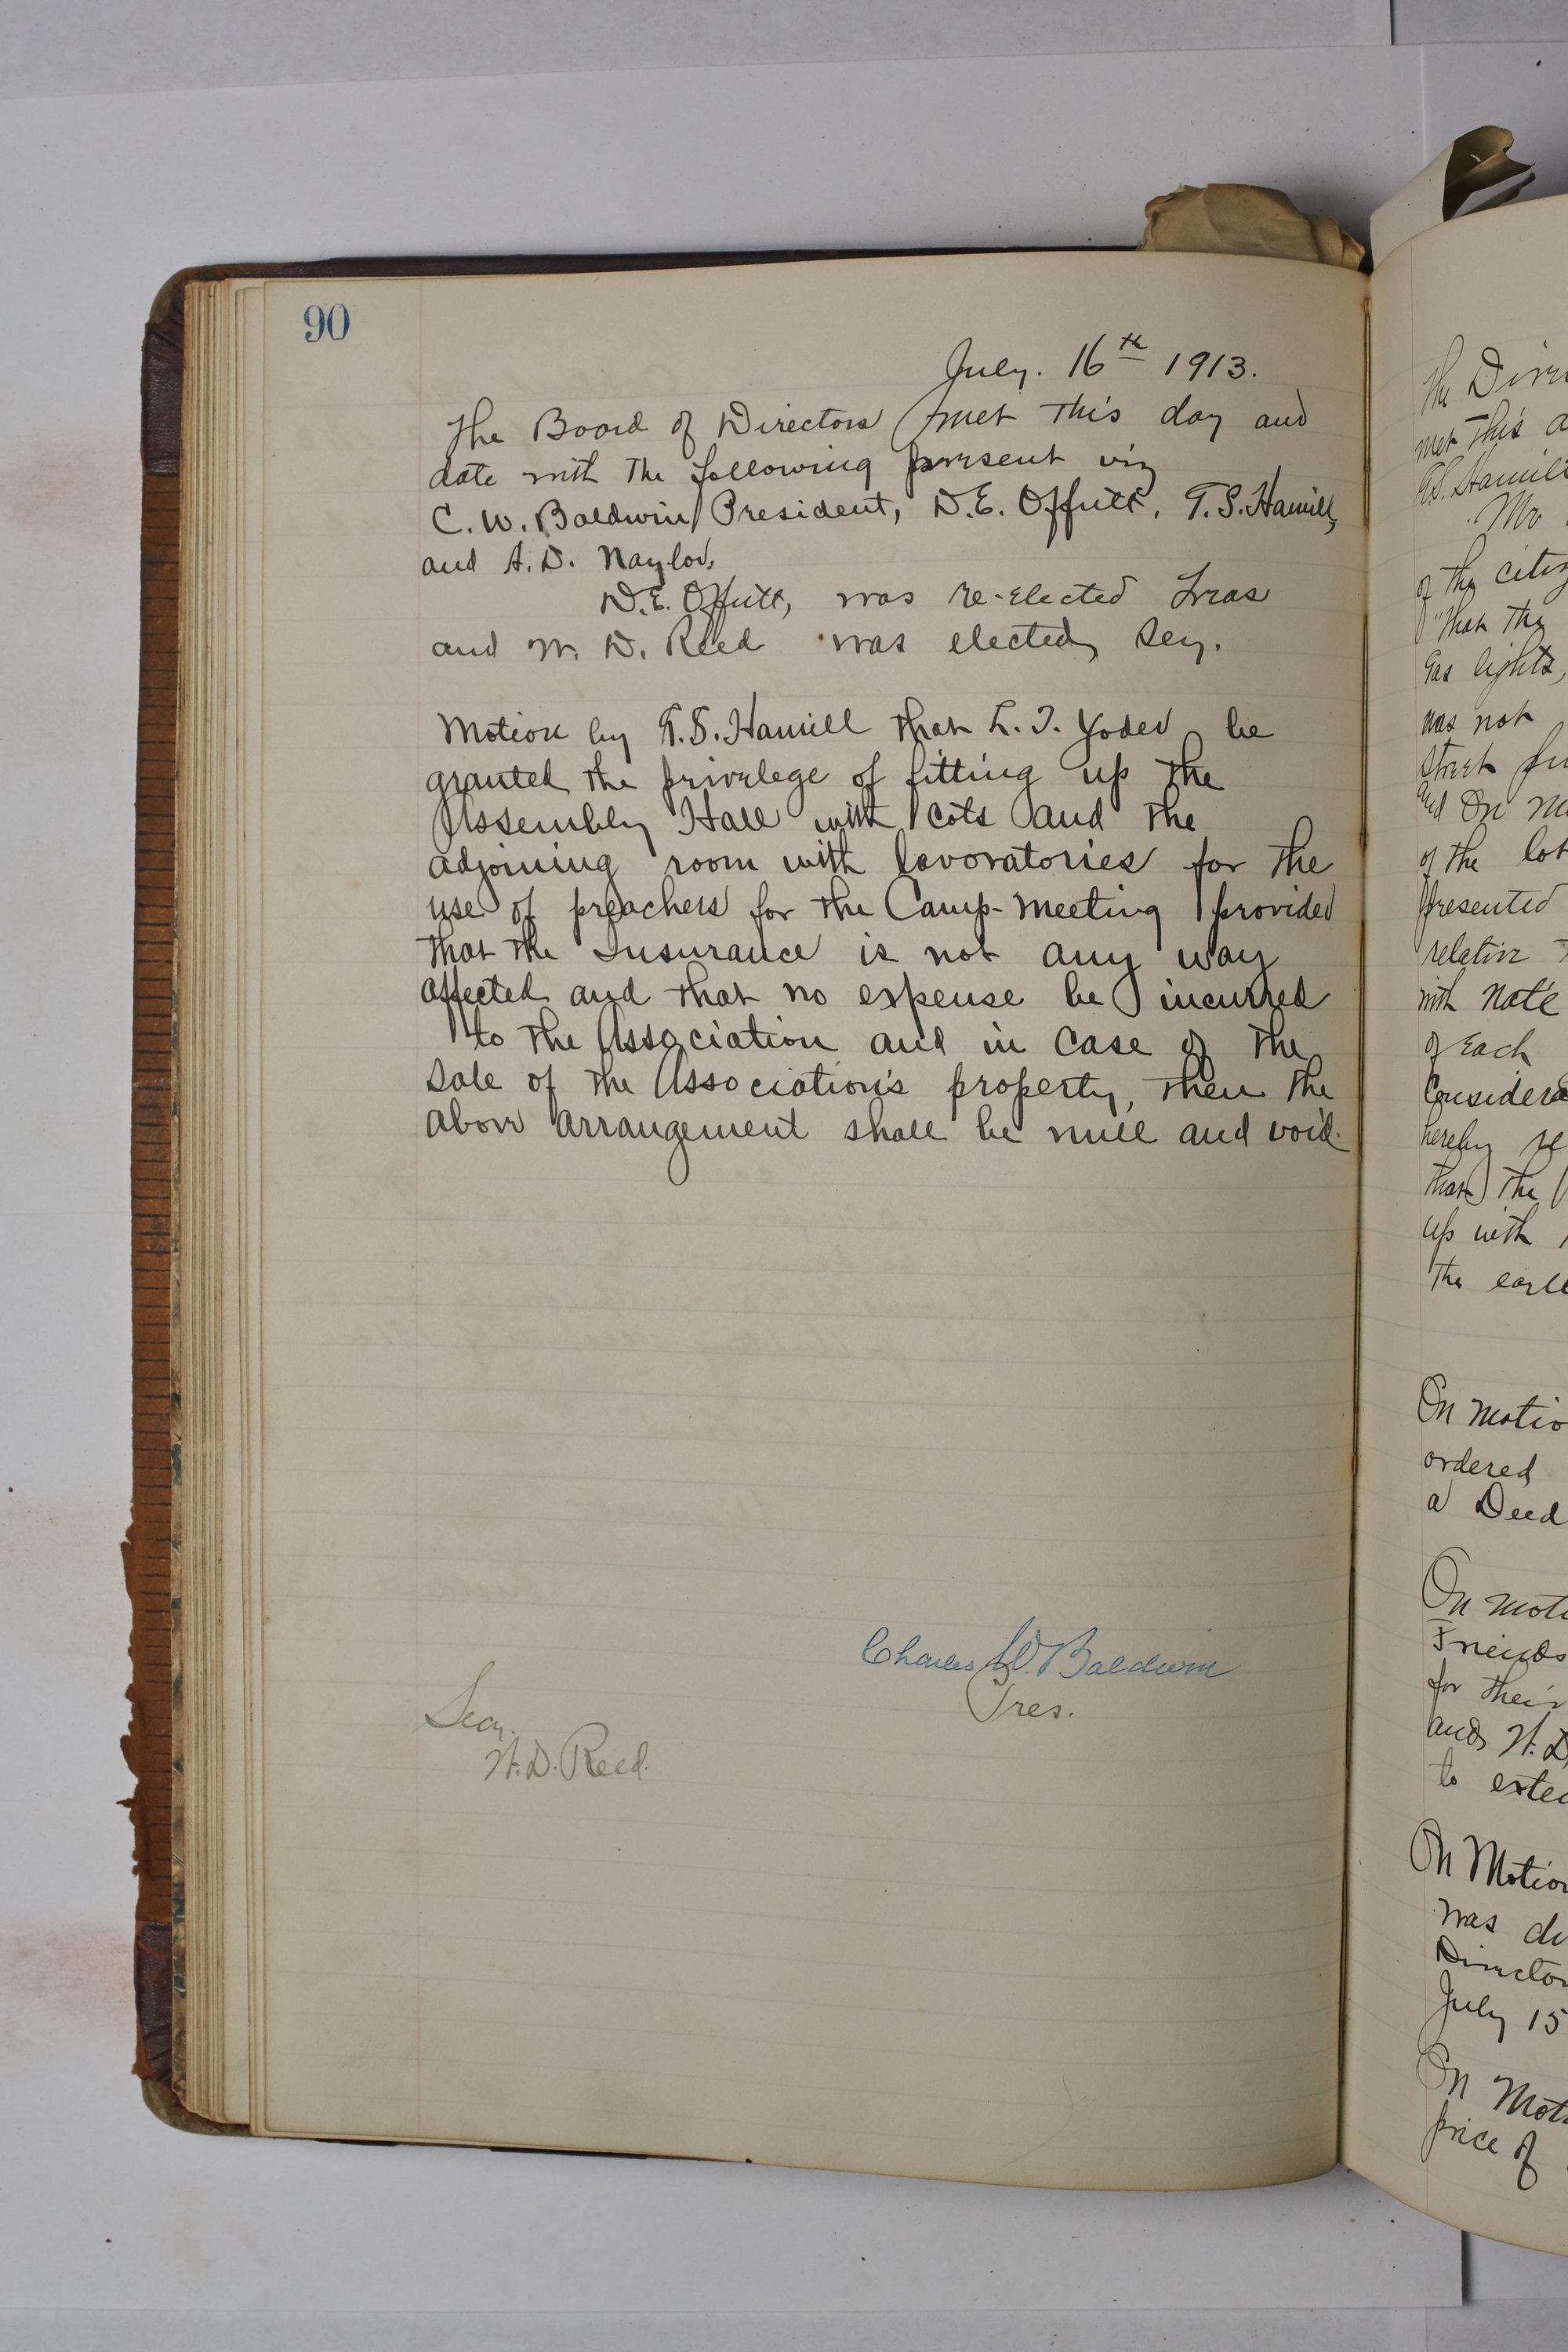 90
July. 16th 1913.
The Board of Directors met this day and
date with the following present viz
C. W. Baldwin President, D.E. Offutt, G.S. Hamill,
and A. D. Naylor,
D.E. Offutt, was re-elected Treas
and W. D. Reed was elected, Secy.
Motion by G.S. Hamill that L. T. Yoder be
granted the privelege of fitting up the
Assembly Hall with cots and the
adjoining room with lavoratories for the
use of preachers for the Camp-Meeting provided
that the Insurance is not any way
affected and that no expense be incurred
to the Association and in case of the
Sale of the Association's property, then the
above arrangement shall be null and void.
Charles W. Baldwin
Pres.
Secy.
W.D. Reed.
The
met this
G.S. Hamill
Mr
of the
"That the
Gas lights,
was not
street
and On
of the lot
presented
relative
with note
of Each
hereby
that the
up with
The
On
ordered
a Deed
On
Friends
for their
and W. D.
to
On Motion
was
July 15
On
price of